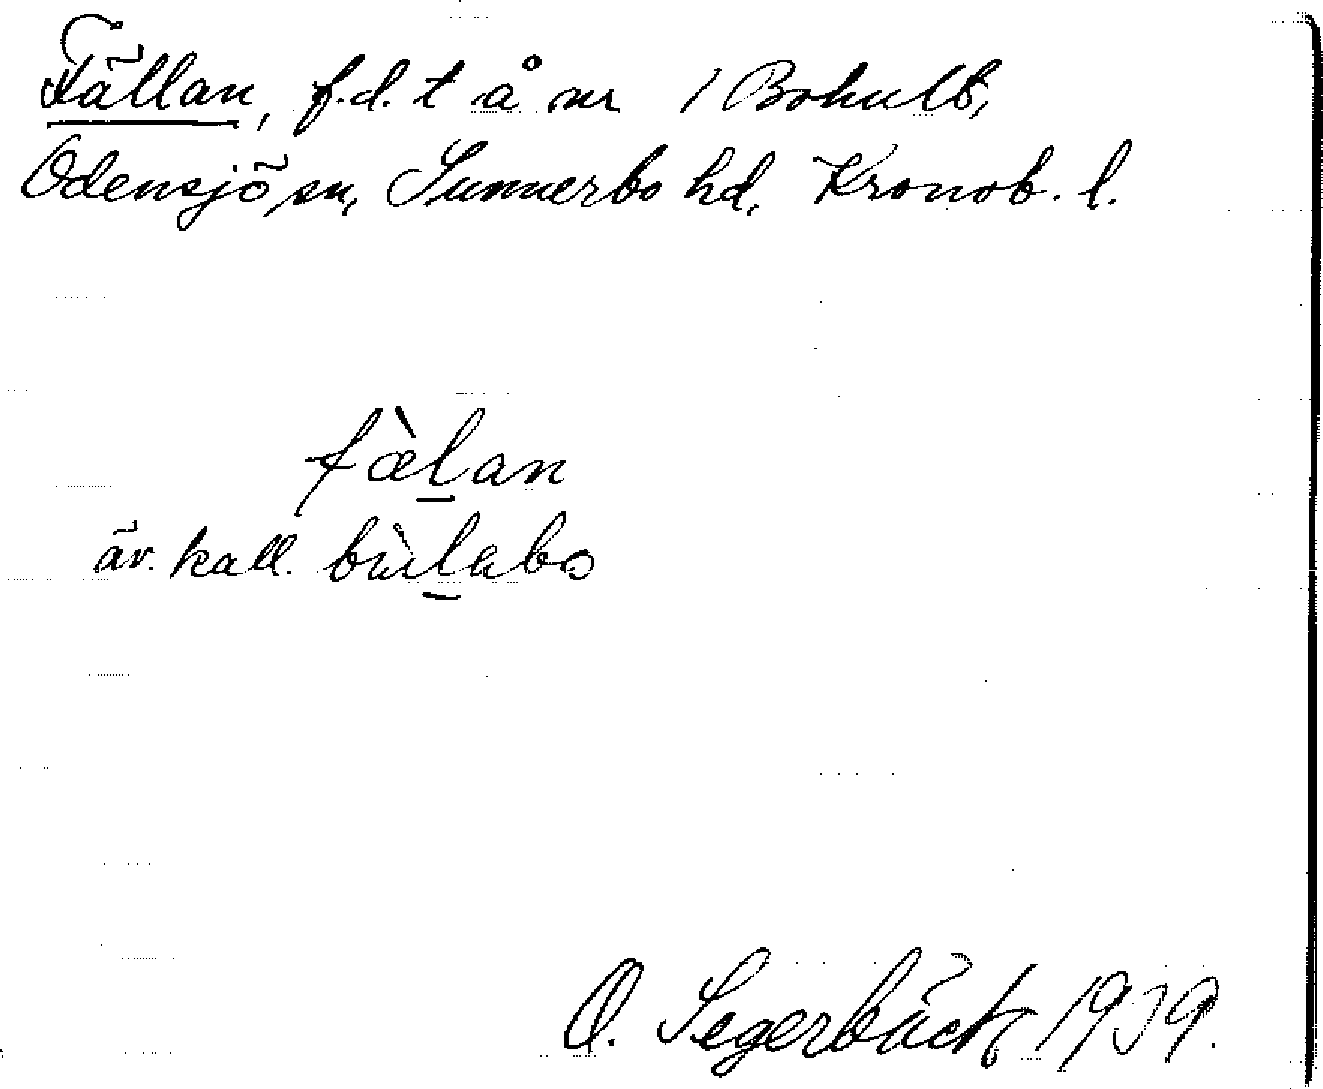 Fällan, f.d. t å nr 1 Bohult,
Odensjö sn, Sunnerbo hd, Kronob. l.
fæ̀l̲an
äv. kall. bùl̲abo
O. Segerbäck 1939.